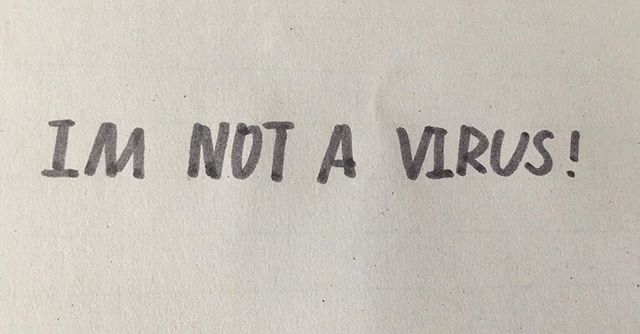 IM NOT A VIRUS!